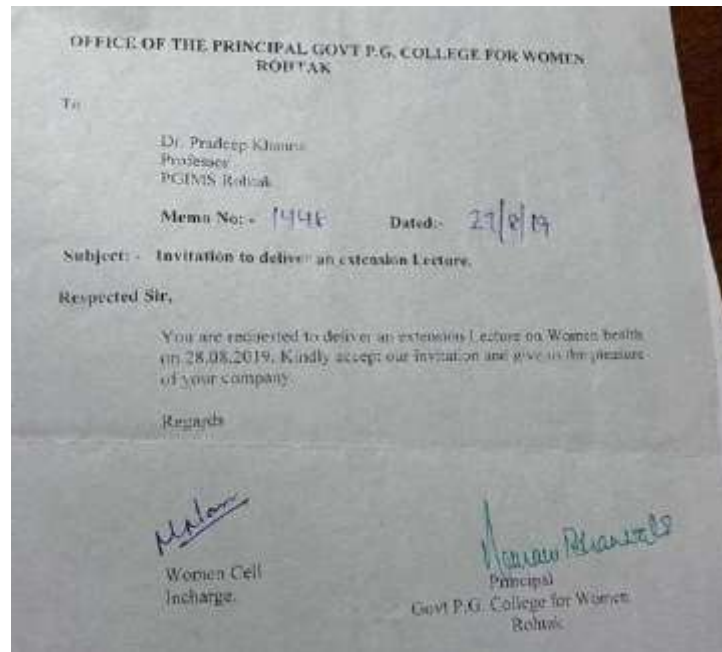 OFFICE OF THE PRINCIPAL GOVT P.G. COLLEGE FOR WOMEN
ROHTAK
To
Dr. Pradeep Khanna
Professor
PGIMS Rohtak
Memo No: - Dated:- 27/8/19
Subject: - Invitation to deliver an extension Lecture.
Respected Sir,
You are requested to deliver an extension Lecture on Women health
on 28.08.2019. Kindly accept our invitation and give us the pleasure
of your company
Regards
Women Cell
Incharge.
Principal
Govt P.G. College for Women
Rohtak